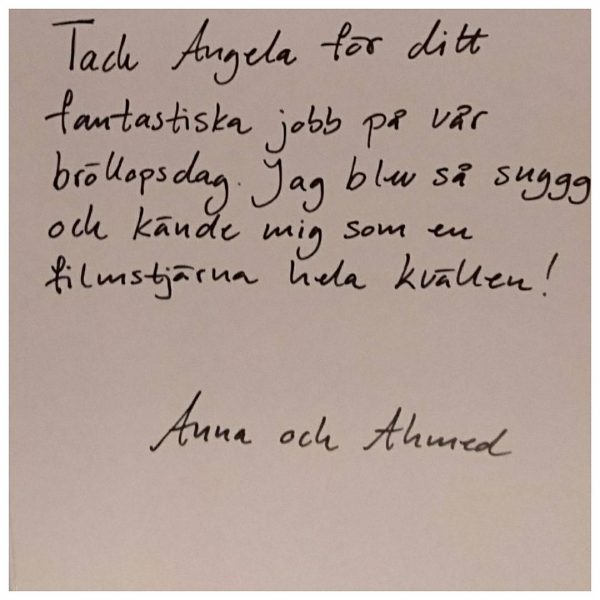 Tack Angela för ditt
fantastiska jobb på vår
bröllopsdag. Jag blev så snygg
och kände mig som en
filmstjärna hela kvällen!
Anna och Ahmed